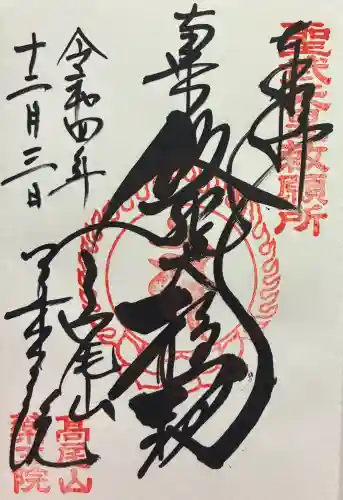 奉拝
聖武天皇勅願所
南無飯縄大権現
高尾山
薬王院
令和四年
十二月三日
高尾山
薬王院